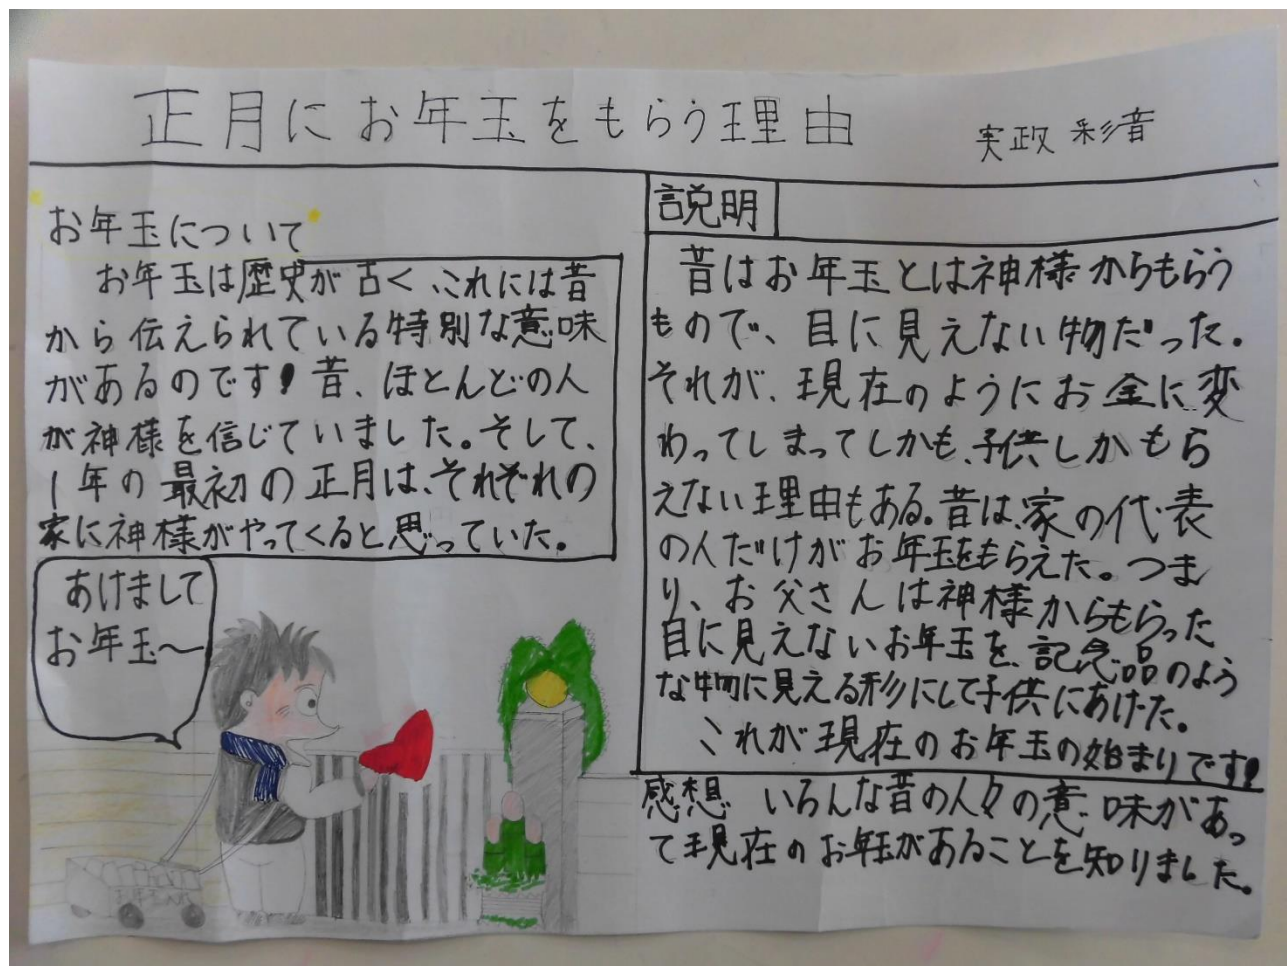 正月にお年玉をもらう理由
実政 彩音
お年玉について
お年玉は歴史が古く、これには昔
から伝えられている特別な意味
があるのです!昔、ほとんどの人
が神様を信じていました。そして、
1年の最初の正月は、それぞれの
家に神様がやってくると思っていた。
あけまして
お年玉〜
説明
昔はお年玉とは神様からもらう
もので、目に見えない物だった。
それが、現在のようにお金に変
わってしまってしかも、子供しかもら
えない理由もある。昔は、家の代表
の人だけがお年玉をもらえた。つま
り、お父さんは神様からもらった
目に見えないお年玉を、記念品のよう
な物に見える形にして子供にあげた。
これが現在のお年玉の始まりです!
感想 いろんな昔の人々の意味があっ
て現在のお年玉があることを知りました。